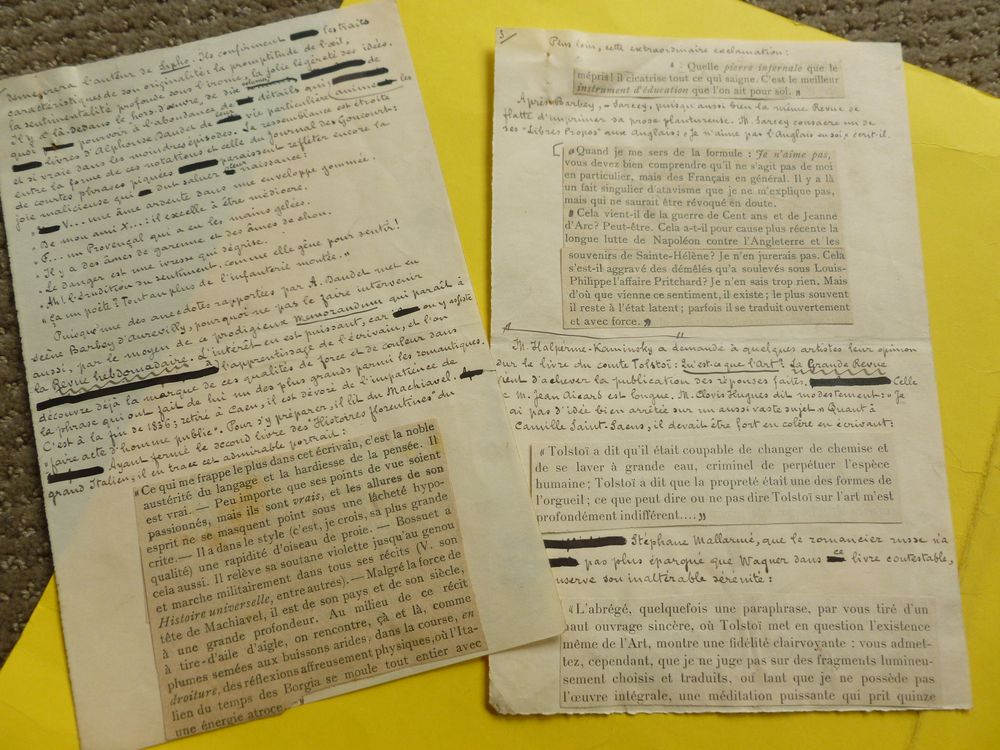 démontrera l'auteur de Sapho. Ils confirment les traits
caractéristiques de son originalité: la promptitude de l'œil,
la sentimentalité profonde sous l'ironie, la jolie légèreté des idées.
Il y a là dedans le hors d'œuvre, se dit
pouvoir à l'abondance de détails qui de
livres d'Alphonse Daudet de vie particulière les
et si vraie dans les moindres épisodes. La ressemblance est étroite
entre la forme de ces notations et celle du Journal des Goncourt:
de courtes phrases piquées paraissent refléter encore la
joie malicieuse qui dut saluer leur naissance:
V... une âme ardente dans une enveloppe gommée.
De mon ami X...: il excelle à être médiocre.
F... un Provençal qui a eu les mains gelées.
Il y a des âmes de garenne et des âmes de chou.
Le danger est une ivresse qui dégrise.
Ah! l'érudition du sentiment, comme elle gêne pour sentir!
Ça un poète? Tout au plus de l'infanterie montée."
Puisqu'une des anecdotes rapportées par A. Daudet met en
scène Barbey d'Aurevilly, pourquoi ne pas le faire intervenir
aussi, par le moyen de ce prodigieux Memorandum qui paraît à
la Revue hebdomadaire. L'intérêt en est puissant, car on y assiste
à l'apprentissage de l'écrivain, et l'on
découvre déjà la marque de ces qualités de force et de couleur dans
la phrase qui ont fait de lui un des plus grands parmi les romantiques.
C'est à la fin de 1836; retiré à Caen, il est dévoré de l'impatience de
"faire acte d'homme public". Pour s'y préparer, il lit du Machiavel.
Ayant fermé le second livre des "Histoires florentines" du
grand Italien, il en trace cet admirable portrait:
«Ce qui me frappe le plus dans cet écrivain, c'est la noble
austérité du langage et la hardiesse de la pensée. Il
est vrai. — Peu importe que ses points de vue soient
passionnés, mais ils sont vrais, et les allures de son
esprit ne se masquent point sous une lâcheté hypo-
crite. — Il a dans le style (c'est, je crois, sa plus grande
qualité) une rapidité d'oiseau de proie. — Bossuet a
cela aussi. Il relève sa soutane violette jusqu'au genou
et marche militairement dans tous ses récits (V. son
Histoire universelle, entre autres). — Malgré la force de
tête de Machiavel, il est de son pays et de son siècle,
à une grande profondeur. Au milieu de ce récit
à tire-d'aile d'aigle, on rencontre, çà et là, comme
plumes semées aux buissons arides, dans la course, en
droiture, des réflexions affreusement physiques, où l'Ita-
lien du temps des Borgia se moule tout entier avec
une énergie atroce...
3
Plus loin, cette extraordinaire exclamation:
Quelle pierre infernale que le
mépris! il cicatrise tout ce qui saigne. C'est le meilleur
instrument d'éducation que l'on ait pour soi.
Après Barbey, — Sarcey, puisqu'aussi bien la même Revue se
flatte d'imprimer sa prose plantureuse. M. Sarcey consacre un de
ses "Libres Propos" aux Anglais: « Je n'aime pas l'Anglais en soi » écrit-il.
«Quand je me sers de la formule : Je n'aime pas,
vous devez bien comprendre qu'il ne s'agit pas de moi
en particulier, mais des Français en général. Il y a là
un fait singulier d'atavisme que je ne m'explique pas,
mais qui ne saurait être révoqué en doute.
» Cela vient-il de la guerre de Cent ans et de Jeanne
d'Arc? Peut-être. Cela a-t-il pour cause plus récente la
longue lutte de Napoléon contre l'Angleterre et les
souvenirs de Sainte-Hélène? Je n'en jurerais pas. Cela
s'est-il aggravé des démêlés qu'a soulevés sous Louis-
Philippe l'affaire Pritchard? Je n'en sais trop rien. Mais
d'où que vienne ce sentiment, il existe; le plus souvent
il reste à l'état latent; parfois il se traduit ouvertement
et avec force. »
M. Halpérine-Kaminsky a demandé à quelques artistes leur opinion
sur le livre du comte Tolstoï: Qu'est-ce que l'art? La Grande Revue
vient d'achever la publication des réponses faites. Celle
de M. Jean Aicard est longue. M. Clovis Hugues dit modestement: « Je
n'ai pas d'idée bien arrêtée sur un aussi vaste sujet. » Quant à
Camille Saint-Saens, il devait être fort en colère en écrivant:
« Tolstoï a dit qu'il était coupable de changer de chemise et
de se laver à grande eau, criminel de perpétuer l'espèce
humaine; Tolstoï a dit que la propreté était une des formes de
l'orgueil; ce que peut dire ou ne pas dire Tolstoï sur l'art m'est
profondément indifférent.... »
Stéphane Mallarmé, que le romancier russe n'a
pas plus épargné que Wagner dans ce livre contestable,
conserve son inaltérable sérénité:
«L'abrégé, quelquefois une paraphrase, par vous tiré d'un
haut ouvrage sincère, où Tolstoï met en question l'existence
même de l'Art, montre une fidélité clairvoyante : vous admet-
tez, cependant, que je ne juge pas sur des fragments lumineu-
sement choisis et traduits, ou tant que je ne possède pas
l'œuvre intégrale, une méditation puissante qui prit quinze